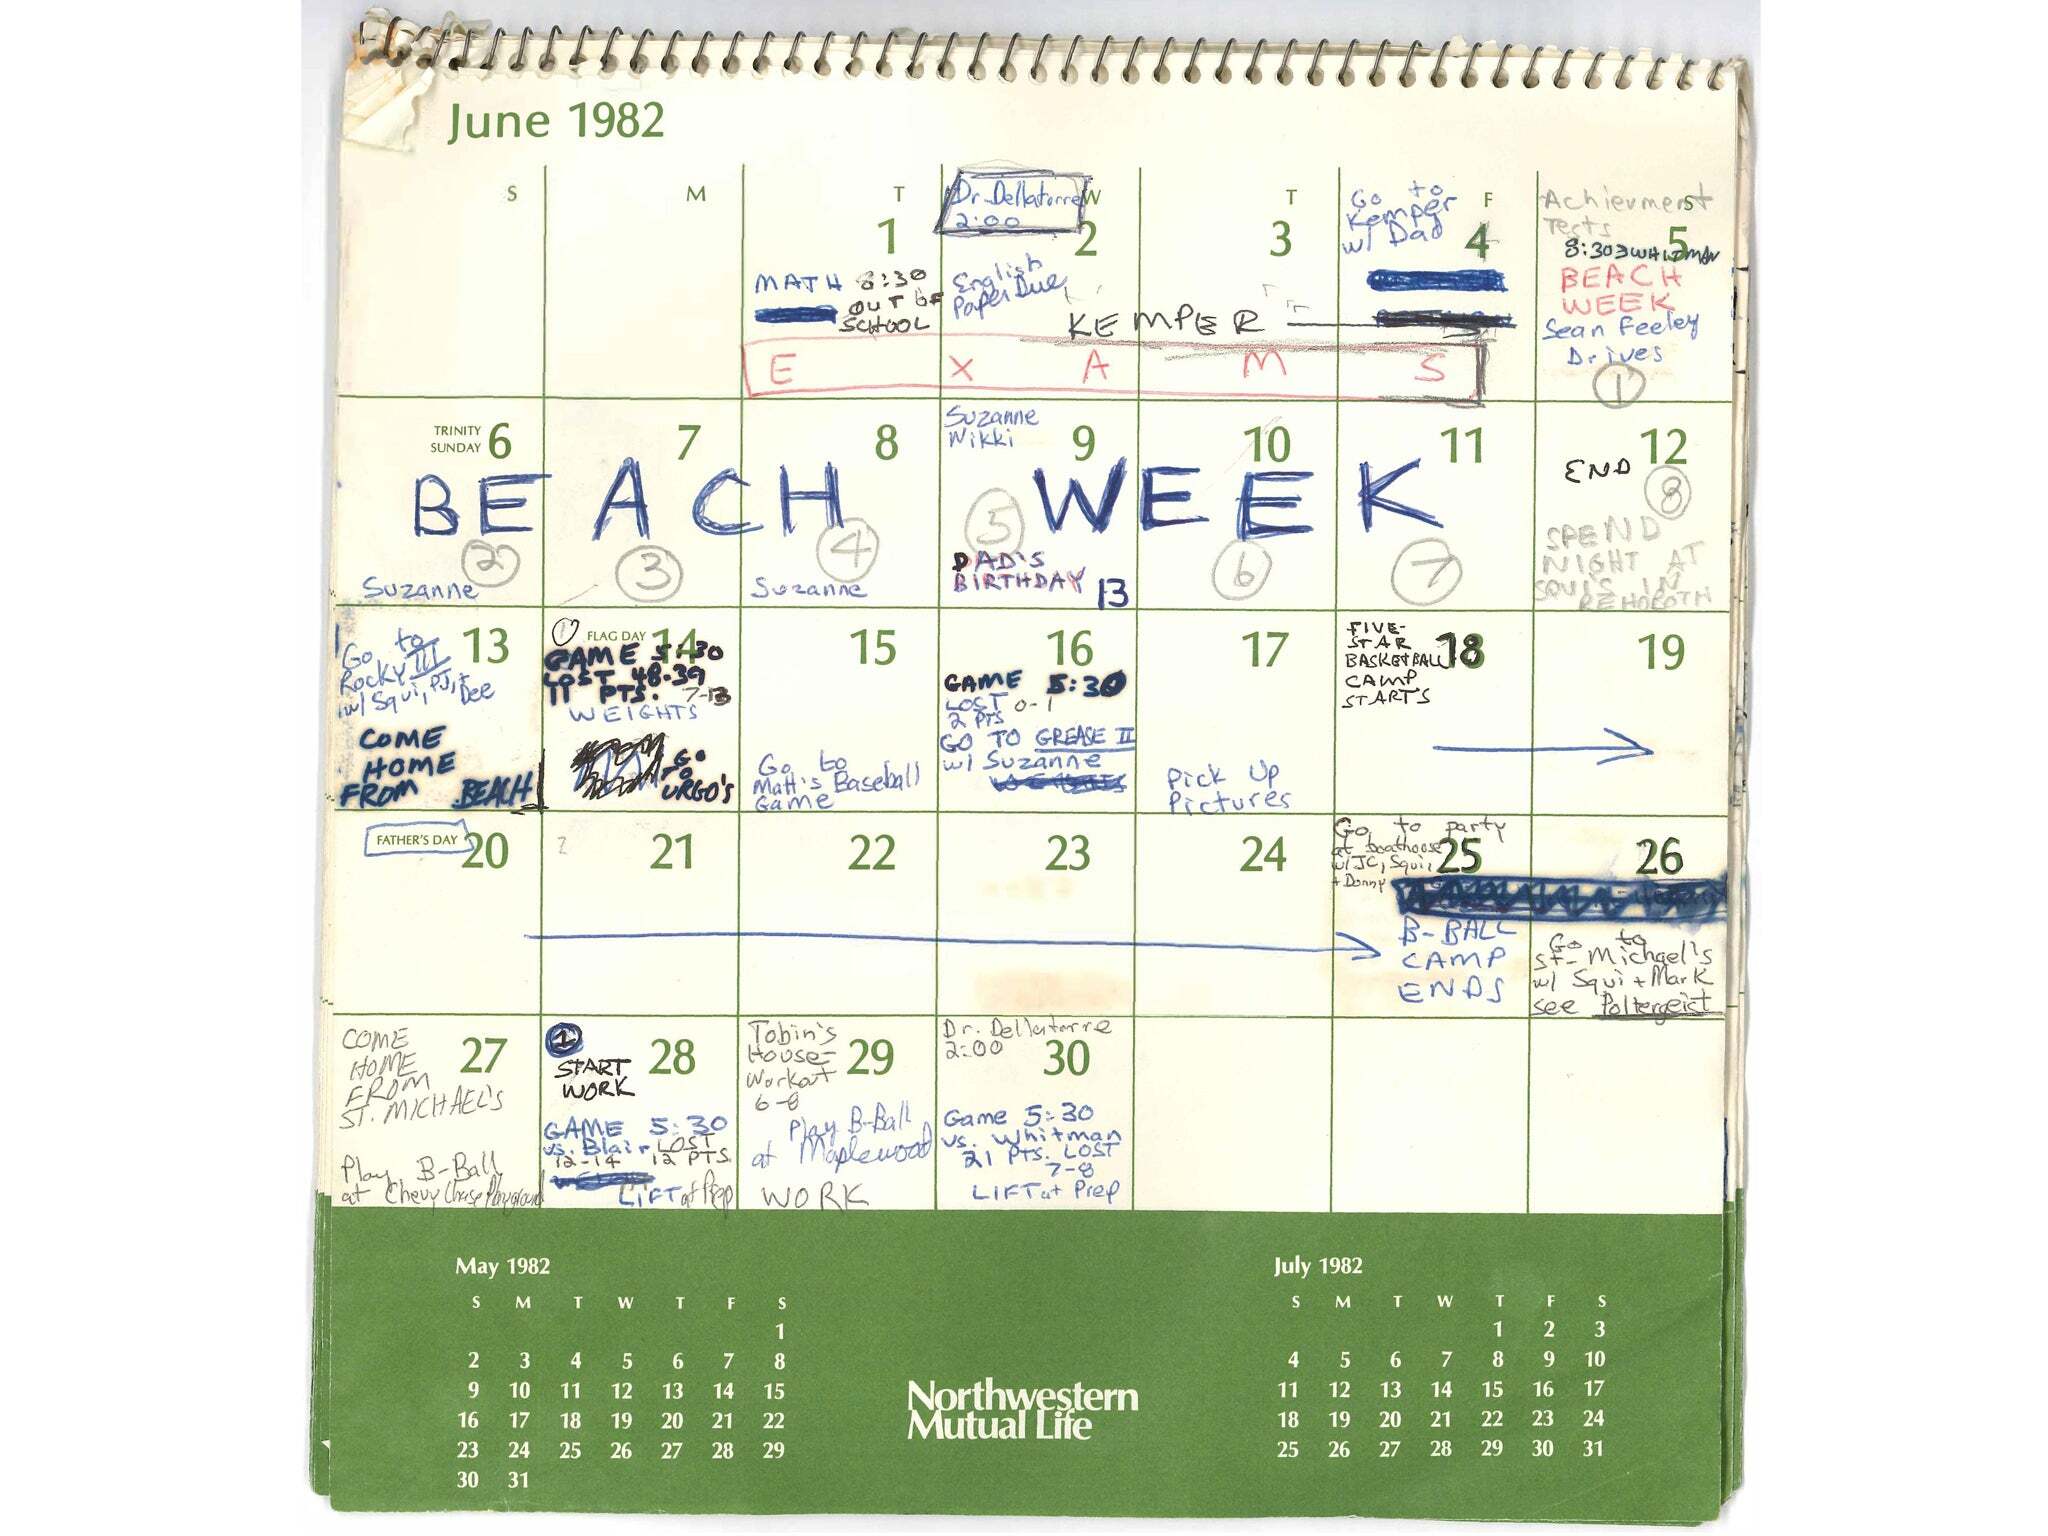 June 1982
S M T W T F S
Dr. Dellatorre
2:00
1
MATH 8:30
OUT OF
SCHOOL
2
English
Paper Due
3
KEMPER
Go to
Kemper
w/ Dad
4
E X A M S
Achievment
Tests
5
8:30 WHITMAN
BEACH
WEEK
Sean Feeley
Drives
1
TRINITY
SUNDAY 6
7
8
Suzanne
Nikki
9
10
11
12
END
8
BEACH WEEK
SPEND
NIGHT AT
SQUI'S IN
REHOBOTH
2
Suzanne
3
4
Suzanne
5
DAD'S
BIRTHDAY 13
6
7
Go to
Rocky III
w/ Squi, PJ, +
Dee
13
COME
HOME
FROM BEACH
1
FLAG DAY 14
GAME 5:30
LOST 48-39
11 PTS. 7-13
WEIGHTS
GO
TO
URGO'S
15
Go to
Matt's Baseball
Game
16
GAME 5:30
LOST 0-1
2 PTS
GO TO GREASE II
w/ Suzanne
17
Pick Up
Pictures
FIVE-
STAR
BASKETBALL
CAMP
START'S
18
19
FATHER'S DAY 20
2
21
22
23
24
Go to party
at boathouse
w/ JC, Squi,
+ Donny
25
B-BALL
CAMP
ENDS
26
Go to
St. Michael's
w/ Squi + Mark
see Poltergeist
COME
HOME
FROM
ST. MICHAEL'S
27
Play B-Ball
at Chevy Chase Playground
1
START
WORK
28
GAME 5:30
vs. Blair LOST
12-14 12 PTS.
LIFT at Prep
Tobin's
House-
Workout
6-8
29
Play B-Ball
at Maplewood
WORK
Dr. Dellatorre
2:00
30
Game 5:30
vs. Whitman
21 PTS. LOST
7-8
LIFT at Prep
May 1982
S M T W T F S
1
2 3 4 5 6 7 8
9 10 11 12 13 14 15
16 17 18 19 20 21 22
23 24 25 26 27 28 29
30 31
Northwestern
Mutual Life
July 1982
S M T W T F S
1 2 3
4 5 6 7 8 9 10
11 12 13 14 15 16 17
18 19 20 21 22 23 24
25 26 27 28 29 30 31